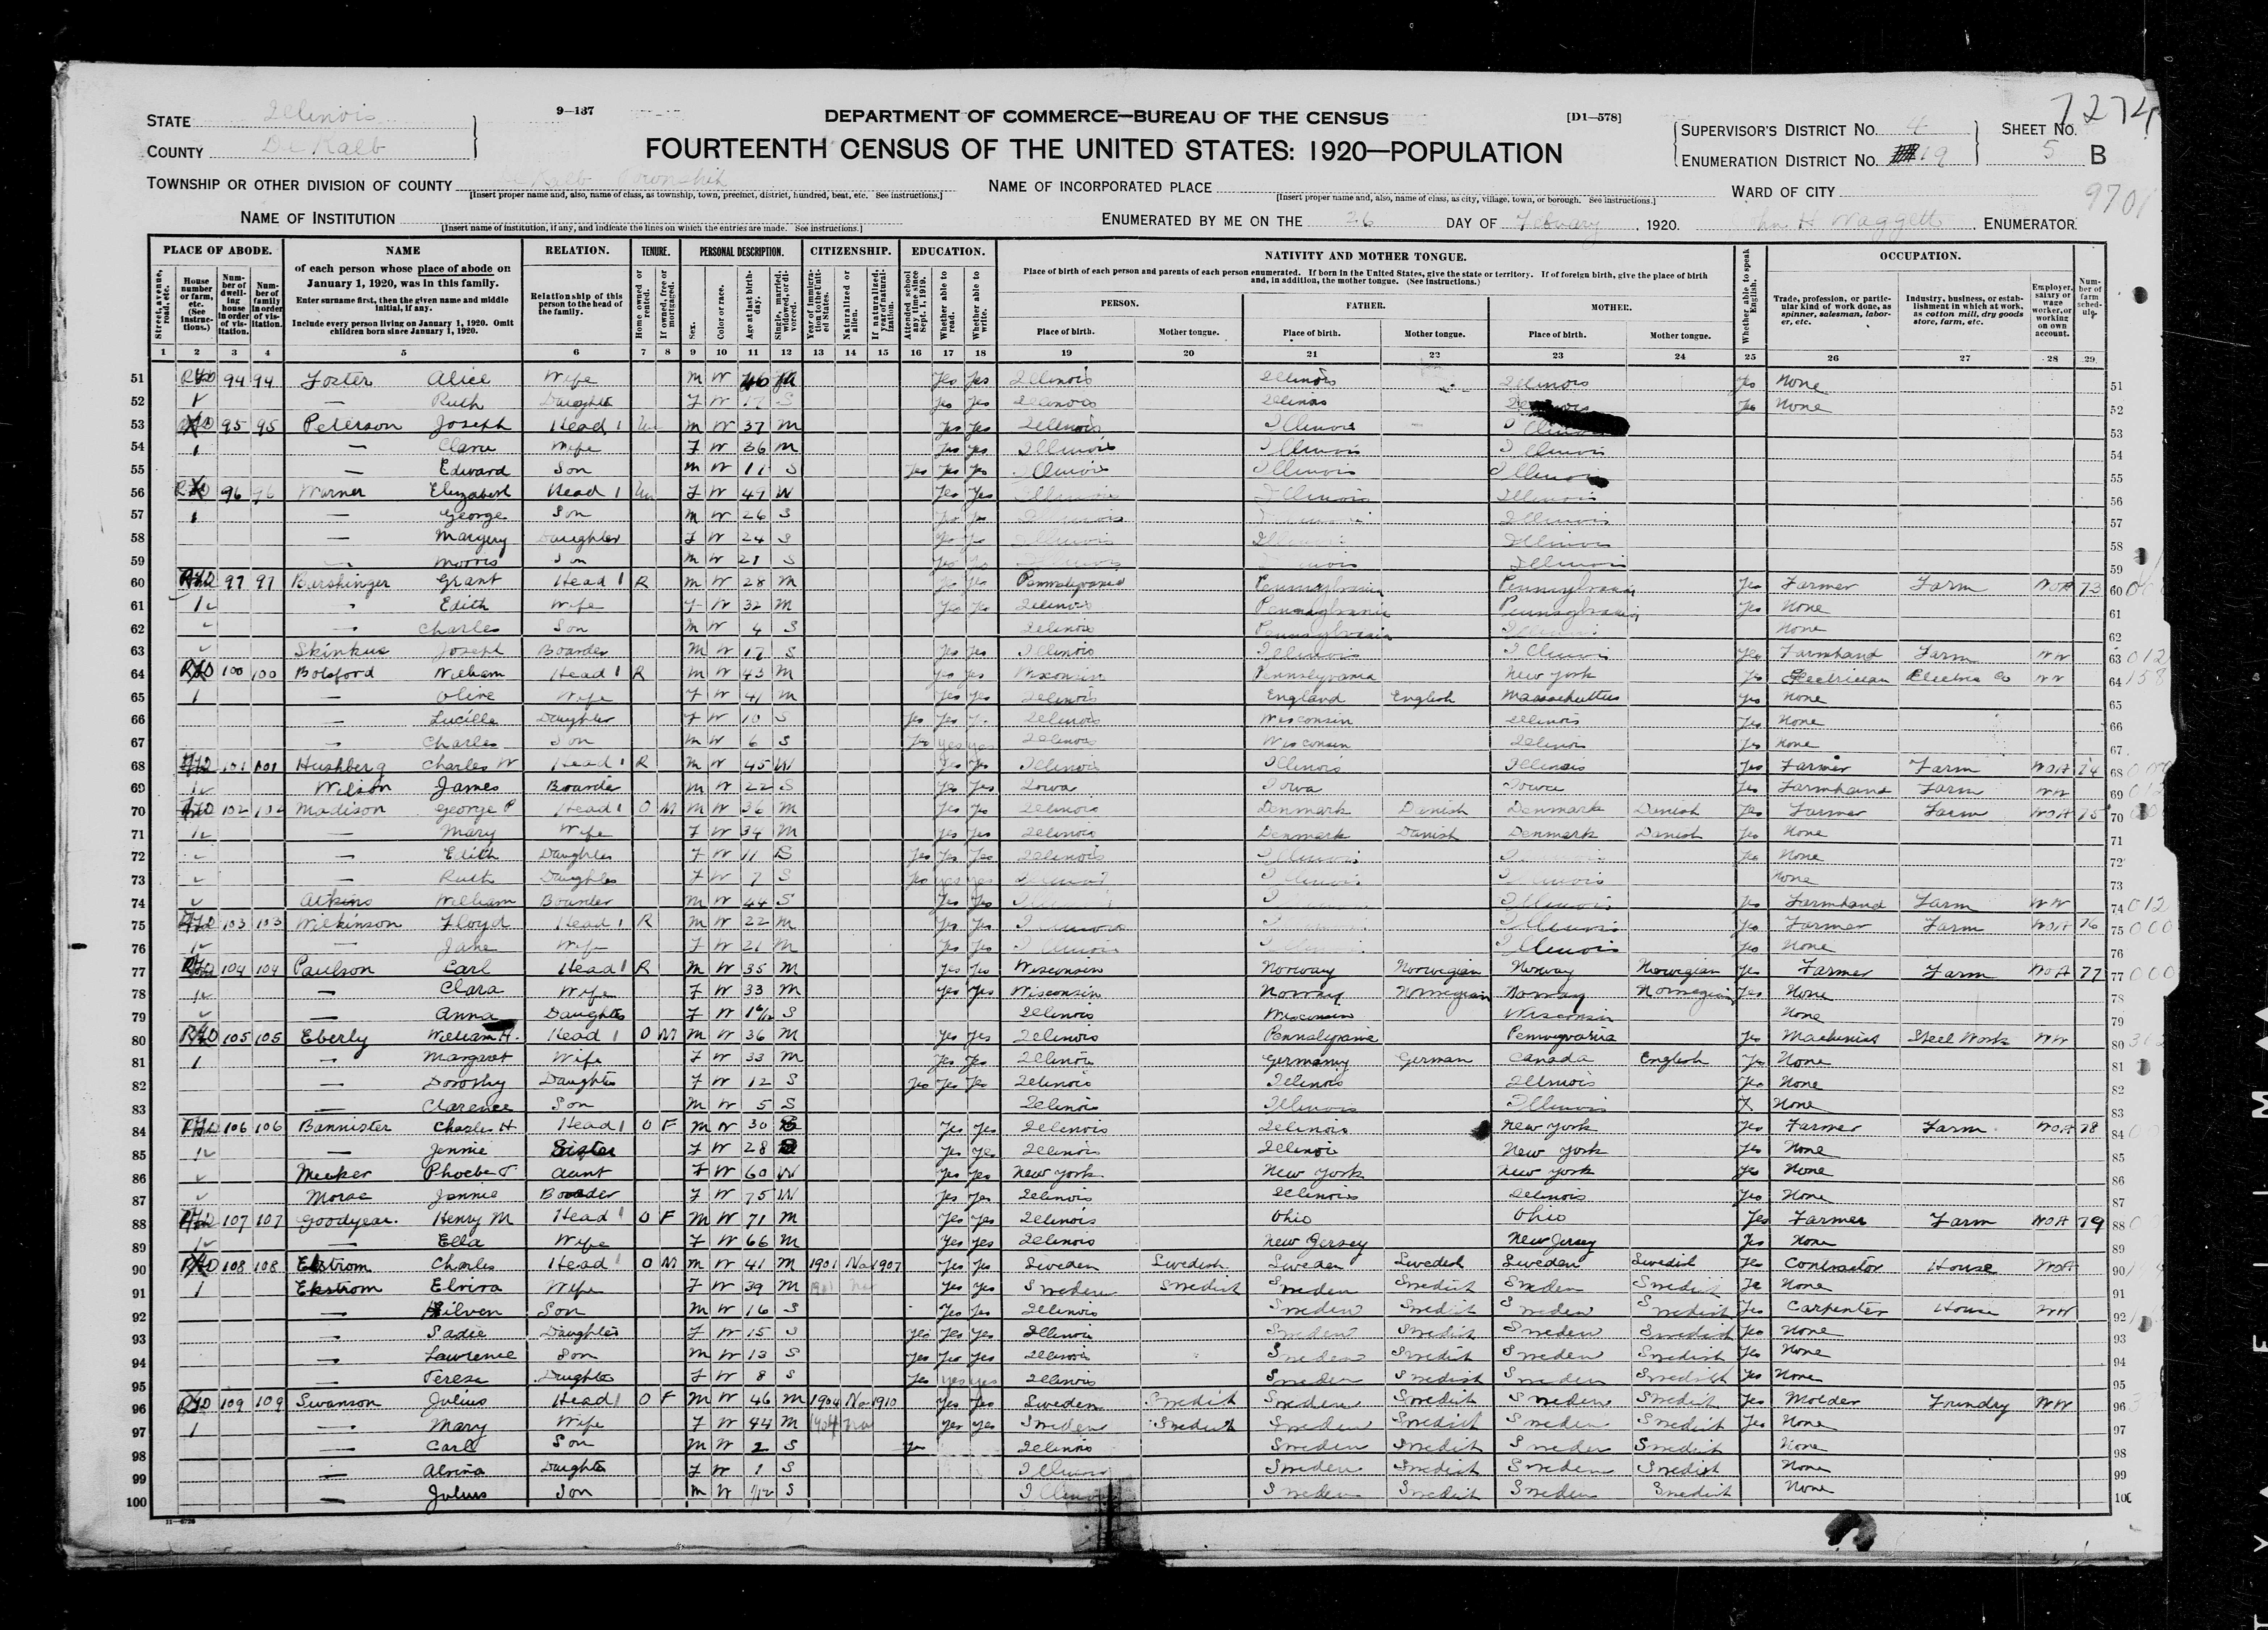 7274
STATE Illinois
9-137
DEPARTMENT OF COMMERCE—BUREAU OF THE CENSUS
[D1-578]
COUNTY De Kalb
FOURTEENTH CENSUS OF THE UNITED STATES: 1920—POPULATION
SUPERVISOR'S DISTRICT No. 4
ENUMERATION DISTRICT No. 19
SHEET No. 5 B
TOWNSHIP OR OTHER DIVISION OF COUNTY Kalb Township
[Insert proper name and, also, name of class, as township, town, precinct, district, hundred, beat, etc. See instructions.]
NAME OF INCORPORATED PLACE
[Insert proper name and, also, name of class, as city, village, town, or borough. See instructions.]
WARD OF CITY
9701
NAME OF INSTITUTION
[Insert name of institution, if any, and indicate the lines on which the entries are made. See instructions.]
ENUMERATED BY ME ON THE 26 DAY OF February, 1920. H Waggett, ENUMERATOR.
PLACE OF ABODE. NAME RELATION. TENURE. PERSONAL DESCRIPTION. CITIZENSHIP. EDUCATION. NATIVITY AND MOTHER TONGUE. OCCUPATION.
Street, avenue, road, etc.
House number or farm, etc. (See instructions.)
Number of dwelling house in order of visitation.
Number of family in order of visitation.
of each person whose place of abode on January 1, 1920, was in this family.
Enter surname first, then the given name and middle initial, if any.
Include every person living on January 1, 1920. Omit children born since January 1, 1920.
Relationship of this person to the head of the family.
Home owned or rented.
If owned, free or mortgaged.
Sex.
Color or race.
Age at last birthday.
Single, married, widowed, or divorced.
Year of immigration to the United States.
Naturalized or alien.
If naturalized, year of naturalization.
Attended school any time since Sept. 1, 1919.
Whether able to read.
Whether able to write.
Place of birth of each person and parents of each person enumerated. If born in the United States, give the state or territory. If of foreign birth, give the place of birth and, in addition, the mother tongue. (See instructions.)
PERSON. FATHER. MOTHER.
Place of birth. Mother tongue. Place of birth. Mother tongue. Place of birth. Mother tongue.
Whether able to speak English.
Trade, profession, or particular kind of work done, as spinner, salesman, laborer, etc.
Industry, business, or establishment in which at work, as cotton mill, dry goods store, farm, etc.
Employer, salary or wage worker, or working on own account.
Number of farm schedule.
1 2 3 4 5 6 7 8 9 10 11 12 13 14 15 16 17 18 19 20 21 22 23 24 25 26 27 28 29
51 RFD 94 94 Foster Alice Wife M W 46 M Yes Yes Illinois Illinois Illinois Yes None 51
52 — Ruth Daughter F W 17 S Yes Yes Illinois Illinois Yes None 52
53 95 95 Peterson Joseph Head 1 M W 37 M Yes Yes Illinois Illinois 53
54 — Clara Wife F W 36 M Yes Yes Illinois Illinois Illinois 54
55 — Edward Son M W 11 S Yes Yes Yes Illinois Illinois Illinois 55
56 96 96 Warner Elizabeth Head 1 F W 49 W Yes Yes Illinois Illinois Illinois 56
57 — George Son M W 26 S Yes Yes Illinois Illinois Illinois 57
58 — Margery Daughter F W 24 S Yes Yes Illinois Illinois Illinois 58
59 — Morris Son M W 21 S Yes Illinois Illinois Illinois 59
60 RFD 97 97 Barshinger Grant Head 1 R M W 28 M Yes Yes Pennsylvania Pennsylvania Pennsylvania Yes Farmer Farm WOA 73 60
61 — Edith Wife F W 32 M Yes Yes Illinois Pennsylvania Pennsylvania Yes None 61
62 — Charles Son M W 4 S Illinois Pennsylvania Illinois None 62
63 Skinkus Joseph Boarder M W 17 S Yes Yes Illinois Illinois Illinois Yes Farmhand Farm WW 63 012
64 RFD 100 100 Botsford William Head 1 R M W 43 M Yes Yes Wisconsin Pennsylvania New York Yes Electrician Electric Co WW 64 158
65 — Olive Wife F W 41 M Yes Yes Illinois England English Massachuttus Yes None 65
66 — Lucille Daughter F W 10 S Yes Yes Illinois Wisconsin Illinois Yes None 66
67 — Charles Son M W 6 S Yes Yes Yes Illinois Wisconsin Illinois Yes None 67
68 RFD 101 101 Hushberg Charles W Head 1 R M W 45 W Yes Yes Illinois Illinois Illinois Yes Farmer Farm WOA 74 68
69 Wilson James Boarder M W 22 S Yes Yes Iowa Iowa Iowa Yes Farmhand Farm WW 69 012
70 RFD 102 102 Madison George P Head 1 O M M W 36 M Yes Yes Illinois Denmark Danish Denmark Danish Yes Farmer Farm WOA 75 70
71 — Mary Wife F W 34 M Yes Yes Illinois Denmark Danish Denmark Danish Yes None 71
72 — Edith Daughter F W 11 S Yes Yes Yes Illinois Illinois Illinois Yes None 72
73 — Ruth Daughter F W 7 S Yes Yes Yes Illinois Illinois Illinois None 73
74 Atkins William Boarder M W 44 S Yes Yes Illinois Illinois Yes Farmhand Farm WW 74 012
75 RFD 103 103 Wilkinson Floyd Head 1 R M W 22 M Yes Yes Illinois Illinois Yes Farmer Farm WOA 76 75 000
76 — Jane Wife F W 21 M Yes Yes Illinois Illinois Yes None 76
77 RFD 104 104 Paulson Carl Head 1 R M W 35 M Yes Yes Wisconsin Norway Norwegian Norway Norwegian Yes Farmer Farm WOA 77 77 000
78 — Clara Wife F W 33 M Yes Yes Wisconsin Norway Norwegian Norway Norwegian Yes None 78
79 — Anna Daughter F W S Illinois Wisconsin Wisconsin None 79
80 RFD 105 105 Eberly William H. Head 1 O M M W 36 M Yes Yes Illinois Pennslyvania Pennsyvania Yes Machinist Steel Works WW 80
81 — Margaret Wife F W 33 M Yes Yes Illinois Germany German Canada English Yes None 81
82 — Dorothy Daughter F W 12 S Yes Yes Yes Illinois Illinois Illinois Yes None 82
83 — Clarence Son M W 5 S Illinois Illinois Illinois X None 83
84 RFD 106 106 Bannister Charles H Head 1 O F M W 30 S Yes Yes Illinois Illinois New York Yes Farmer Farm WOA 78 84
85 — Jennie Sister F W 28 Yes Yes Illinois Illinois New York Yes None 85
86 Meeker Phoebe T Aunt F W 60 W Yes Yes New York New York New York Yes None 86
87 Morse Jennie Boarder F W 75 W Yes Yes Illinois Illinois Illinois Yes None 87
88 RFD 107 107 Goodyear. Henry M Head 1 O F M W 71 M Yes Yes Illinois Ohio Ohio Yes Farmer Farm WOA 79 88
89 — Ella Wife F W 66 M Yes Yes Illinois New Jersey New Jersey Yes None 89
90 RFD 108 108 Ekstrom Charles Head 1 O M M W 41 M 1901 Na 1907 Yes Yes Sweden Swedish Sweden Swedish Sweden Swedish Yes Contractor House WOA 90
91 Ekstrom Elvira Wife F W 39 M Yes Yes Sweden Swedish Sweden Swedish Sweden Swedish Yes None 91
92 — Hilven Son M W 16 S Yes Yes Illinois Sweden Swedish Sweden Swedish Yes Carpenter House WW 92
93 — Sadie Daughter F W 15 S Yes Yes Yes Illinois Sweden Swedish Sweden Swedish Yes None 93
94 — Lawrence Son M W 13 S Yes Yes Yes Illinois Sweden Swedish Sweden Swedish Yes None 94
95 — Teresa Daughter F W 8 S Yes Yes Yes Illinois Sweden Swedish Sweden Swedish Yes None 95
96 RFD 109 109 Swanson Julius Head 1 O F M W 46 M 1904 Na 1910 Yes Yes Sweden Swedish Sweden Swedish Sweden Swedish Yes Molder Foundry WW 96
97 — Mary Wife F W 44 M 1904 Na Yes Yes Sweden Swedish Sweden Swedish Sweden Swedish Yes None 97
98 — Carl Son M W 2 S Illinois Sweden Swedish Sweden Swedish None 98
99 — Alvina Daughter F W 1 S Illinois Sweden Swedish Sweden Swedish None 99
100 — Julius Son M W 1/12 S Illinois Sweden Swedish Sweden Swedish None 100